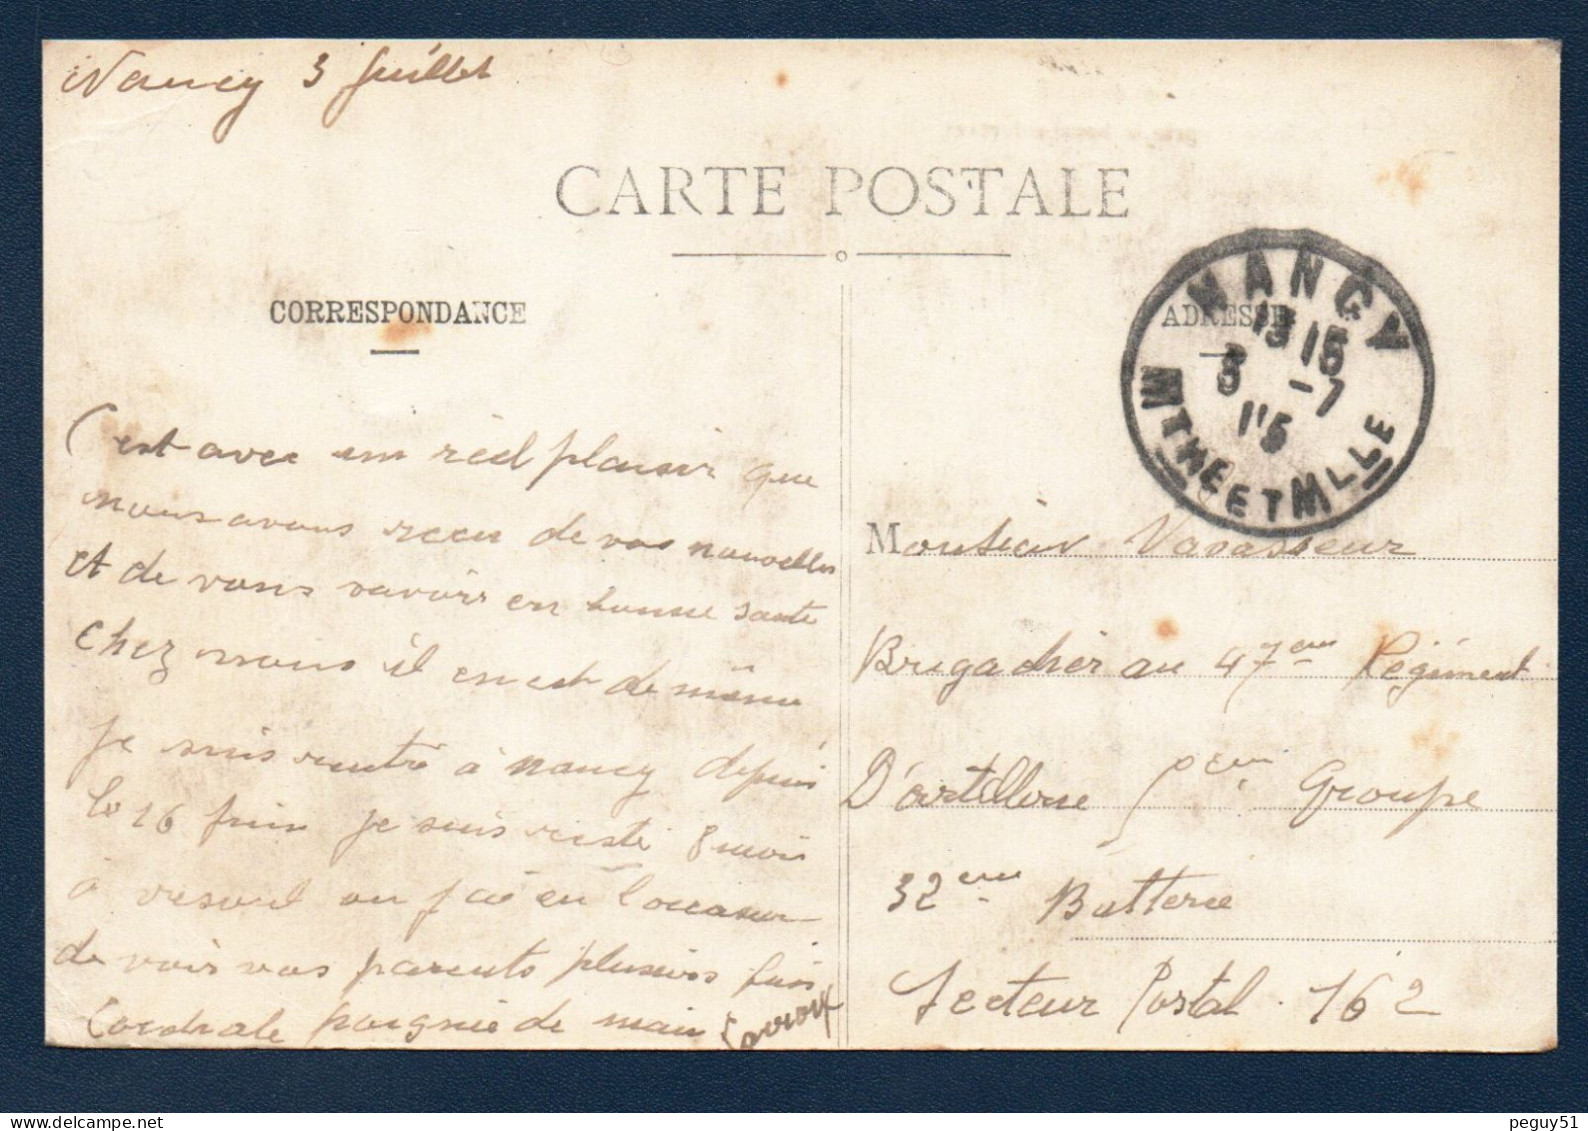 Nancy 3 Juillet
CARTE POSTALE
CORRESPONDANCE
ADRESSE
NANCY
15 15
3 -7
15
MTHE ET MLLE
C'est avec un réel plaisir que
nous avons recu de vos nouvelles
et de vous savoir en bonne santé
Chez nous il en est de même
Je suis rentré à Nancy depuis
le 16 Juin Je suis resté 8 mois
à vesoul ou J'ai eu l'occasion
de voir vos parents plusieurs fois
Cordiale poignée de main
Monsieur Vavasseur
Brigadier au 47eme Régiment
D'artillerie Groupe
32eme Batterie
Secteur Postal. 162
peguy51